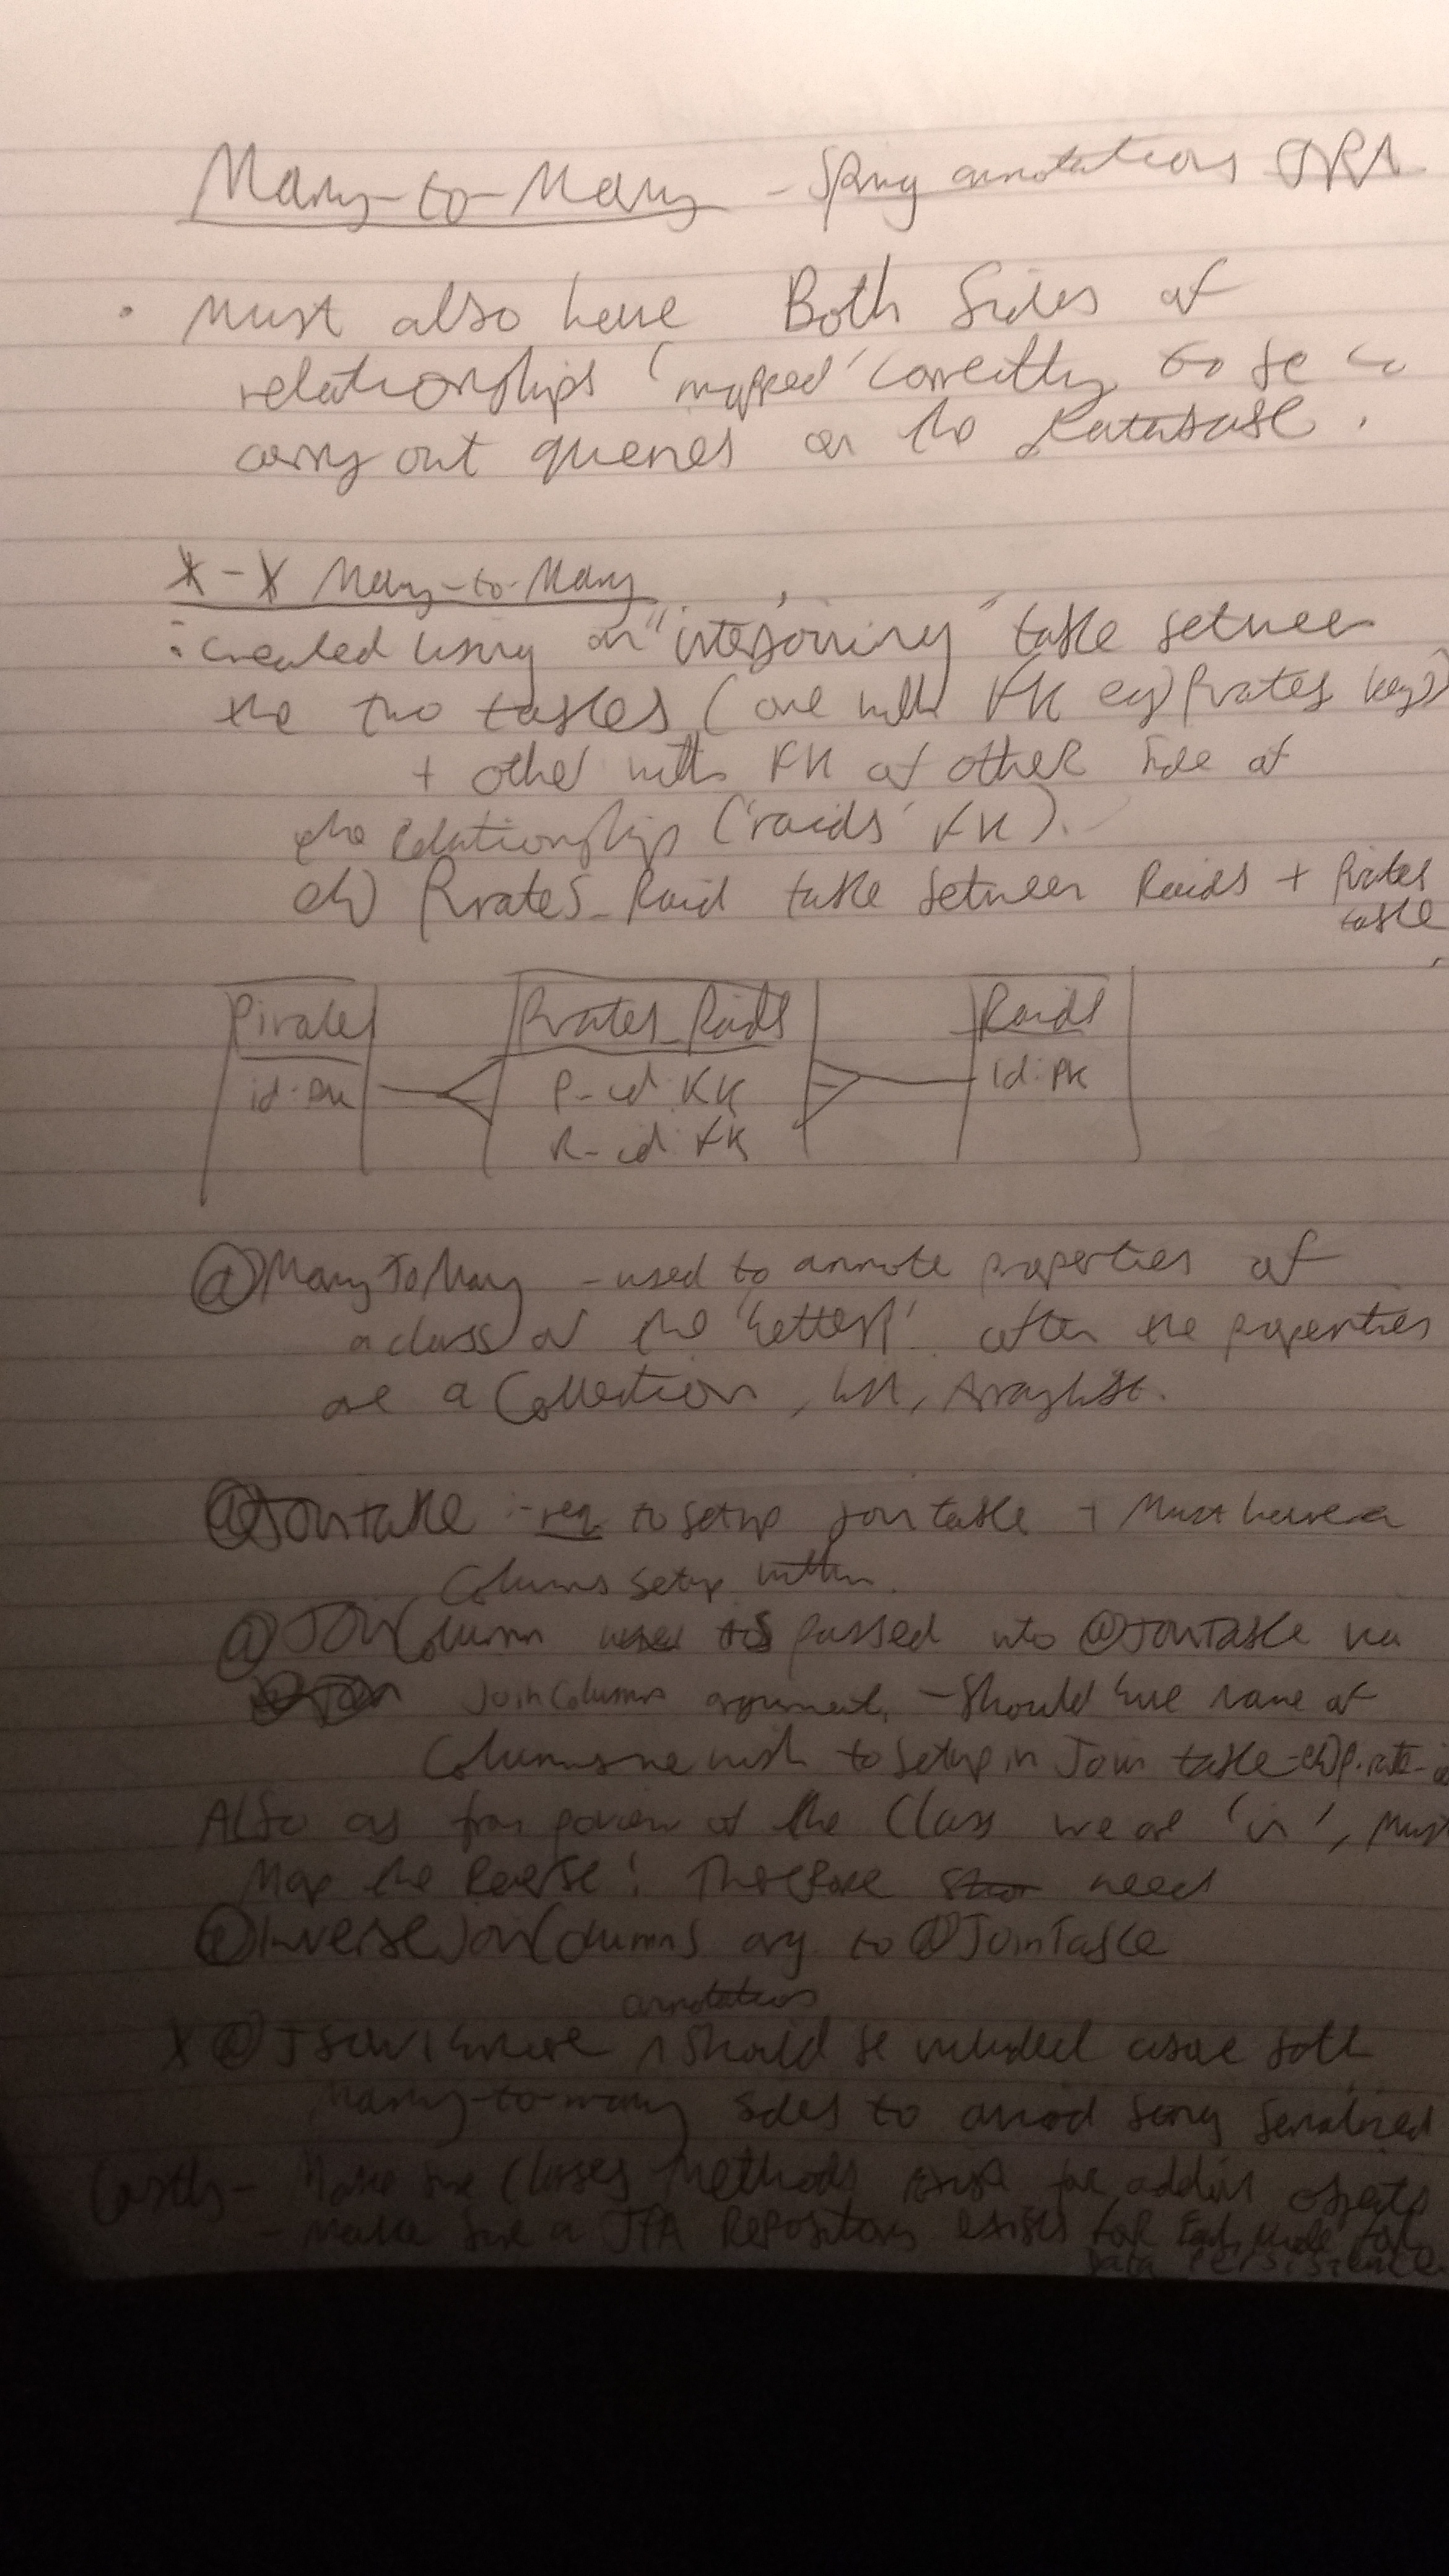 Many-to-Many - Spring annotations JPA
• Must also have Both Sides of
relationships 'mapped' correctly to be
carry out queries on the database.
X-X Many-to-Many
: created using an "interjoining" table between
the two tables (one with FK eg) Pirates key)
+ other with FK of other side of
the relationship ('raids' FK).
eh) Pirates_Raid table between Raids + Pirates
table
Pirates Pirates_Raids Raids
id: PK P-id: FK id: PK
R-id: FK
@ManyToMany - used to annote properties of
a class or the 'getters' often the properties
are a Collection, List, ArrayList.
@JoinTable :- req to setup join table + Must have a
Columns setup within.
@JoinColumn used to passed into @JoinTable via
JoinColumns argument, - Should have name of
Columns we wish to setup in Join table - eh)
Also as from of the Class we are 'in', Must
Map the Reverse! Therefore need
@InverseJoinColumns arg to @JoinTable
annotations
X @JSONIgnore ^ Should be included above both
Many-to-many sides to avoid being serialized
Lastly - Make sure Classes Methods exist for adding objects
- Make sure a JPA Repository exists for Each Model for
data persistence